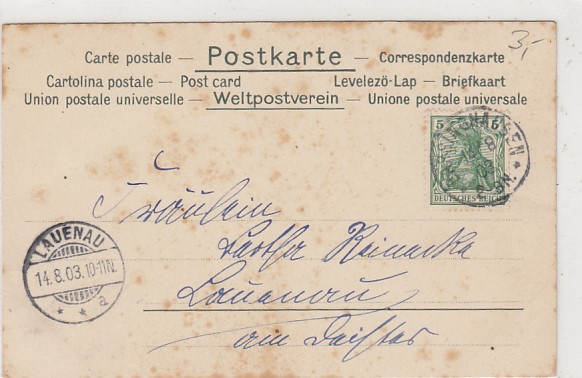 3,-
Carte postale — Postkarte — Correspondenzkarte
Cartolina postale — Post card Levelezö-Lap — Briefkaart
Union postale universelle — Weltpostverein — Unione postale universale
5 5
DEUTSCHES REICH
Fräulein
Bertha Reinecke
Lauenau
am Deister
LAUENAU
14.8.03.10-11N.
* * a